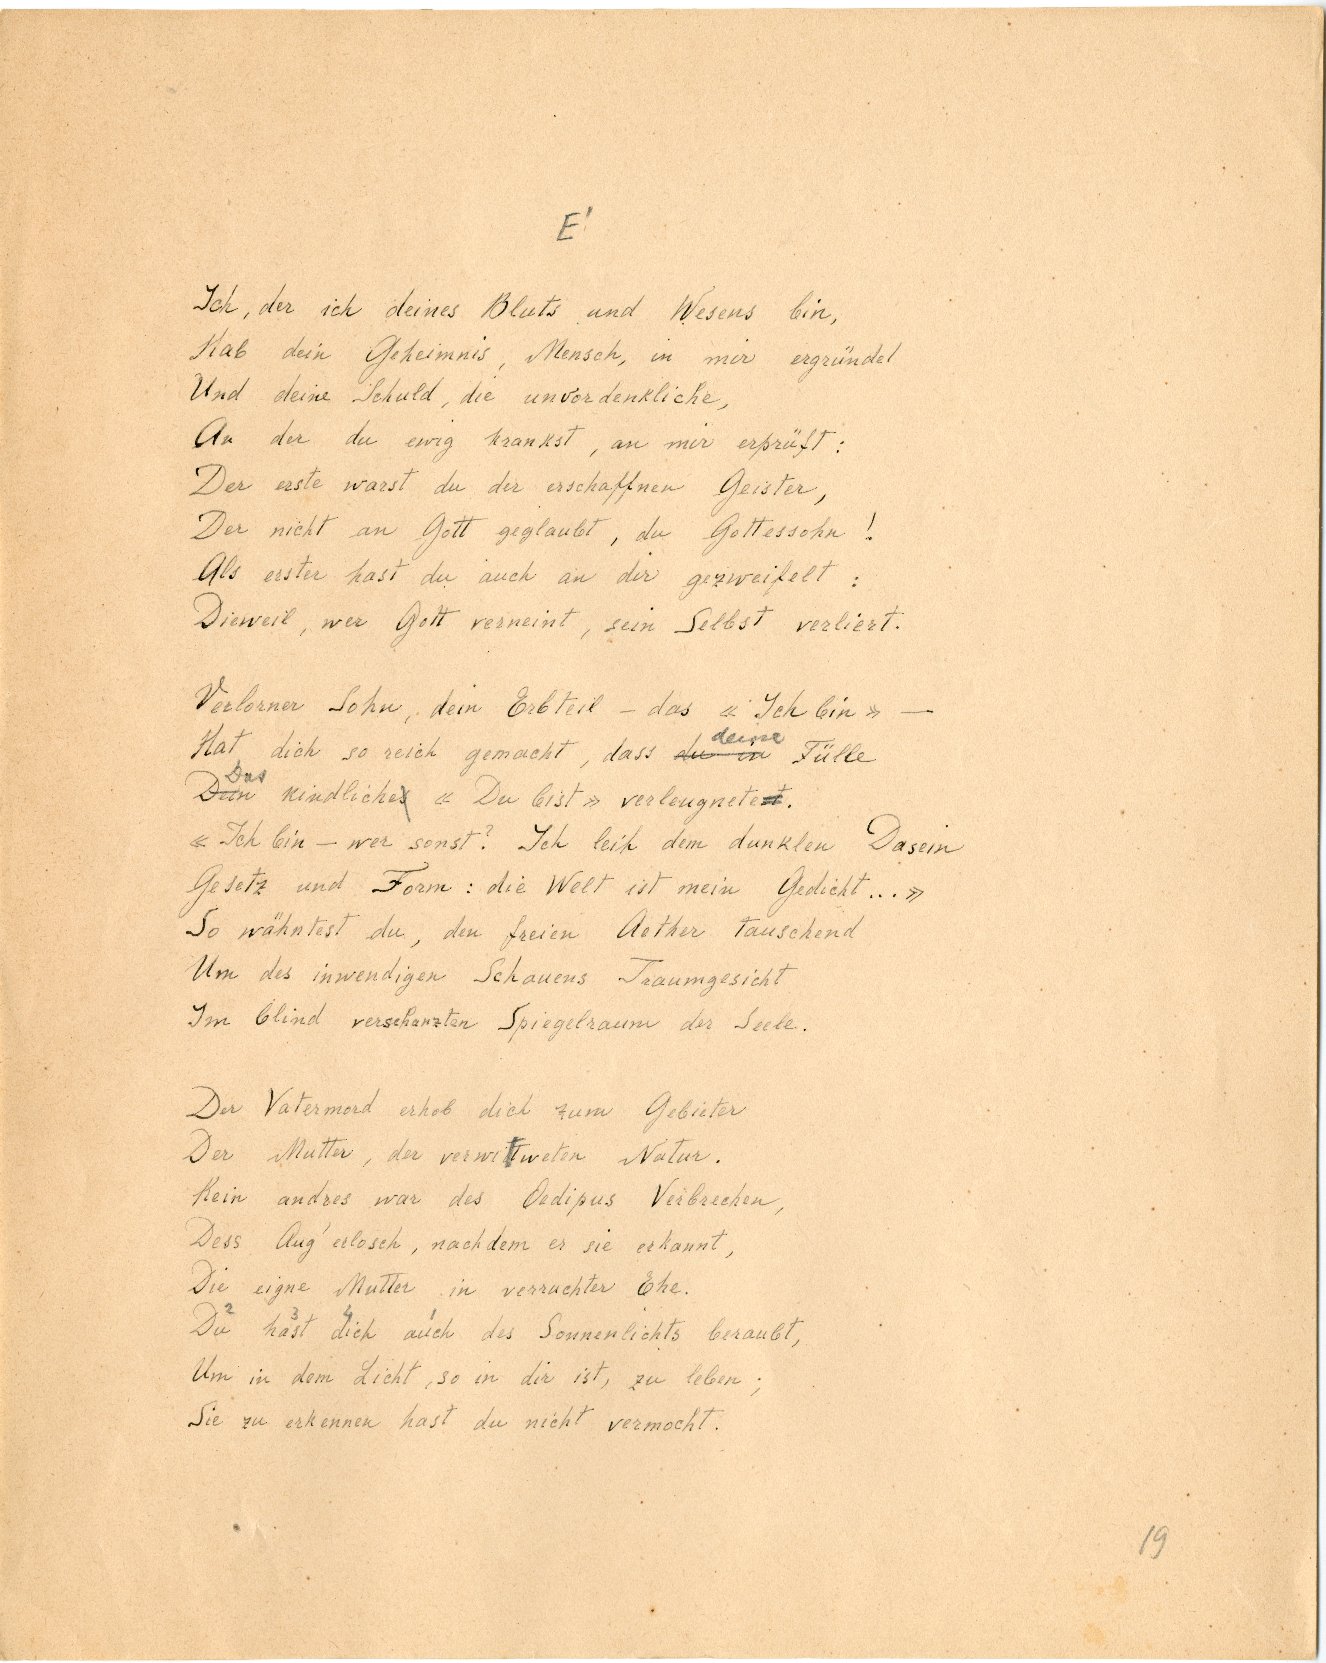 E'
Ich, der ich deines Bluts und Wesens bin,
Hab dein Geheimnis, Mensch, in mir ergründet
Und deine Schuld, die unvordenkliche,
An der du ewig krankst, an mir erprüft:
Der erste warst du der erschaffnen Geister,
Der nicht an Gott geglaubt, du Gottessohn!
Als erster hast du auch an dir gezweifelt:
Dieweil, wer Gott verneint, sein Selbst verliert.
Verlorner Sohn, dein Erbteil – das « Ich bin » –
deine
Hat dich so reich gemacht, dass du in Fülle
Das
Dein kindliches « Du bist » verleugnetest.
« Ich bin – wer sonst? Ich leih dem dunklen Dasein
Gesetz und Form: die Welt ist mein Gedicht... »
So wähntest du, den freien Aether tauschend
Um des inwendigen Schauens Traumgesicht
Im blind verschanzten Spiegelraum der Seele.
Der Vatermord erhob dich zum Gebieter
Der Mutter, der verwittweten Natur.
Kein andres war des Oedipus Verbrechen,
Dess Aug' erlosch, nachdem er sie erkannt,
Die eigne Mutter in verruchter Ehe.
2 3 4 1
Du hast dich auch des Sonnenlichts beraubt,
Um in dem Licht, so in dir ist, zu leben;
Sie zu erkennen hast du nicht vermocht.
19